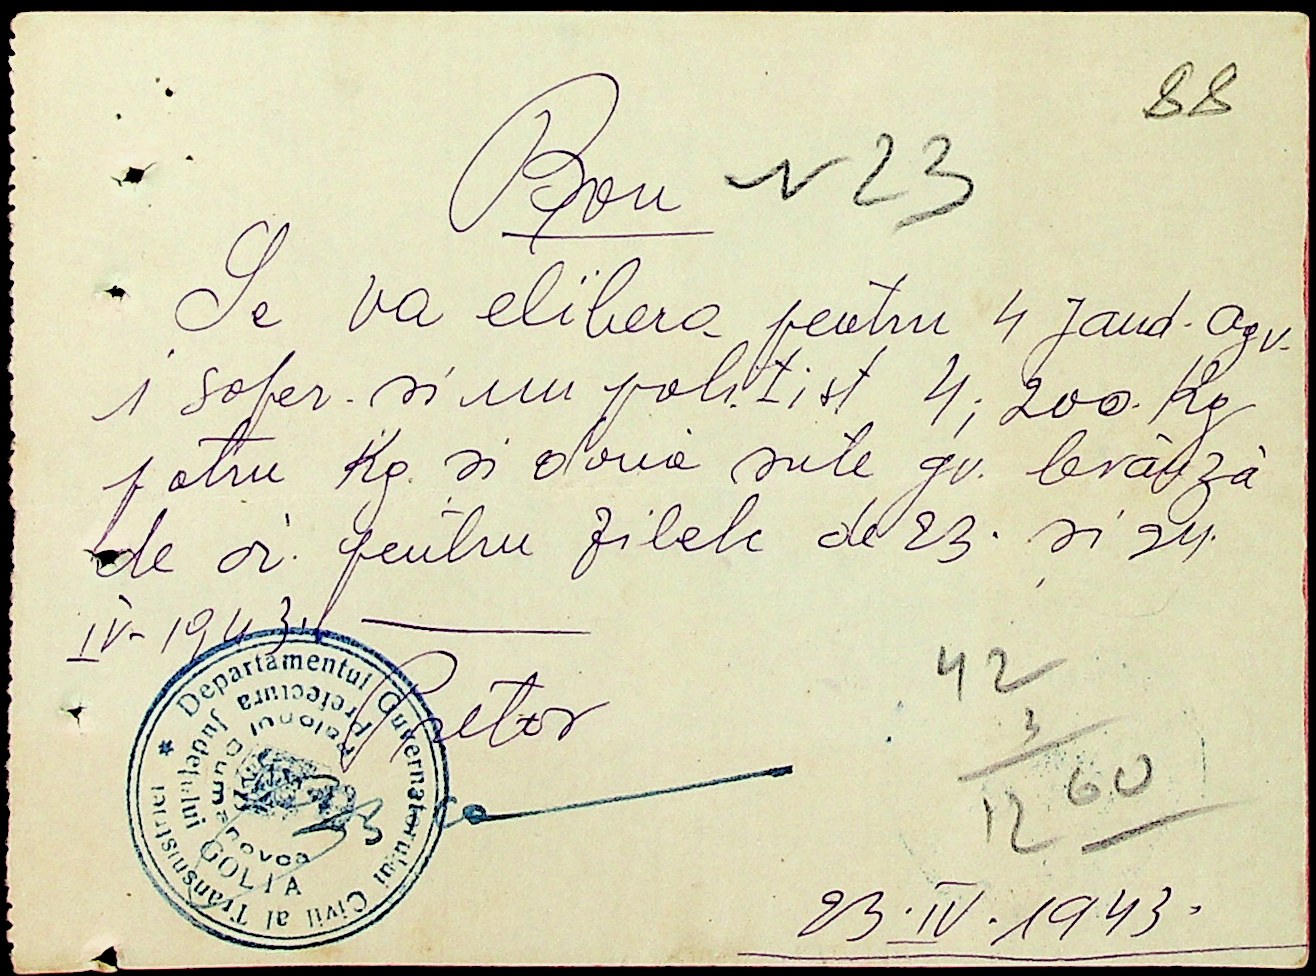 88
Bon N 23
Se va elibera pentru 4 Jand. Agv.
1 sofer. si un politist 4,200. Kg
patru Kg. si doua sute gr. brânză
de oi. pentru zilele de 23. si 24.
IV-1943.
Pretor
Departamentul Guvernatorului Civil al Transnistriei
Prefectura Județului GOLTA
Raionul Dumanovca
42
3
12 60
23.IV.1943.